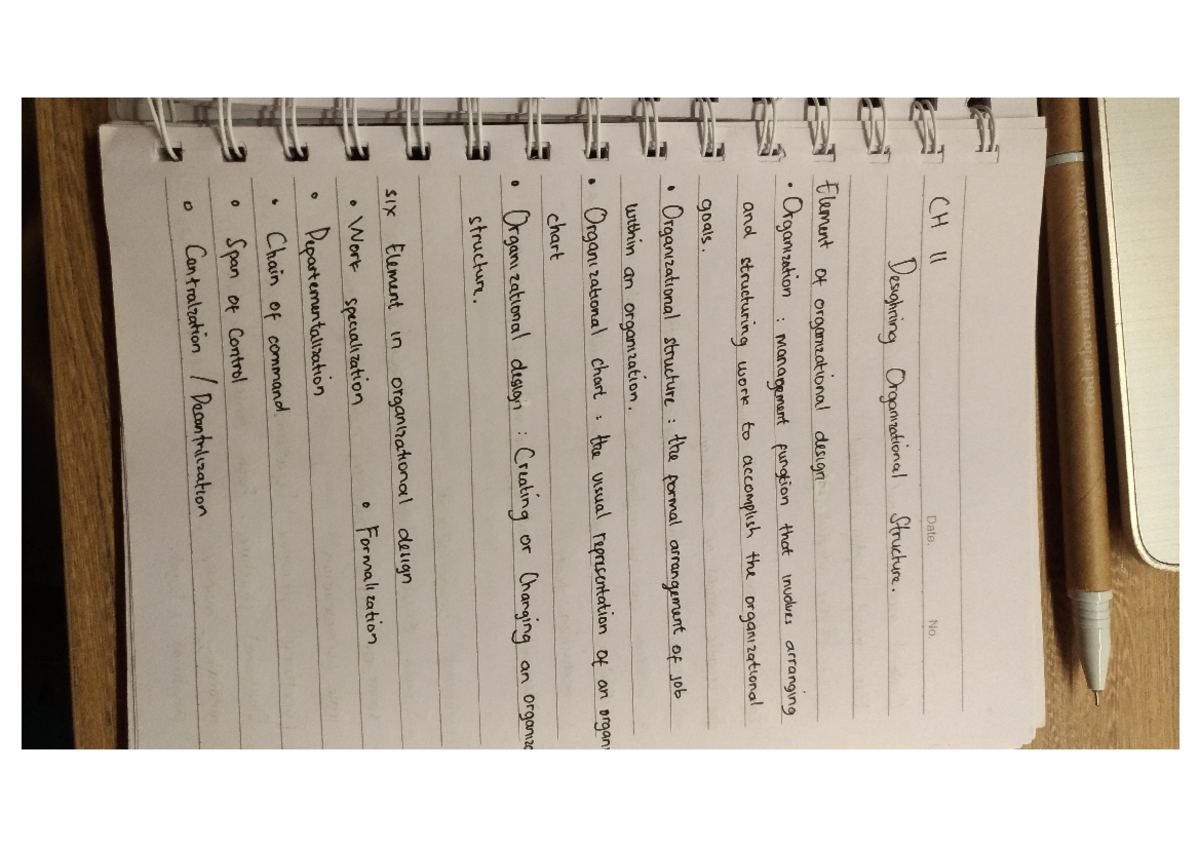 Date. No.
CH 11
Designing Organizational Structure.
Element of organizational design
• Organization : management function that involves arranging
and structuring work to accomplish the organizational
goals.
• Organizational structure : the formal arrangement of job
within an organization.
• Organizational chart : the visual representation of an organi
chart
• Organizational design : Creating or Changing an organiza
structure.
six Element in organizational design
• Work specialization • Formalization
• Departementalization
• Chain of command
• Span of Control
• Centralzation / Decentrilization